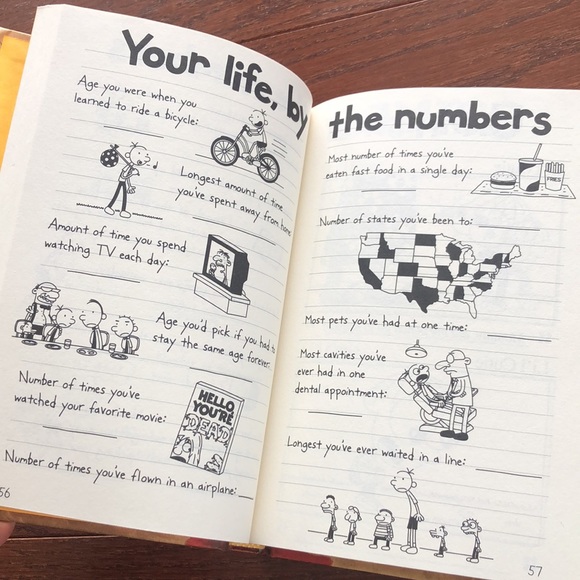 Your life, by the numbers
Age you were when you
learned to ride a bicycle:
Longest amount of time
you've spent away from home:
Amount of time you spend
watching TV each day:
Age you'd pick if you had to
stay the same age forever:
Number of times you've
watched your favorite movie:
HELLO,
YOU'RE
DEAD
Number of times you've flown in an airplane:
56
Most number of times you've
eaten fast food in a single day:
FRIES
Number of states you've been to:
Most pets you've had at one time:
Most cavities you've
ever had in one
dental appointment:
Longest you've ever waited in a line:
57